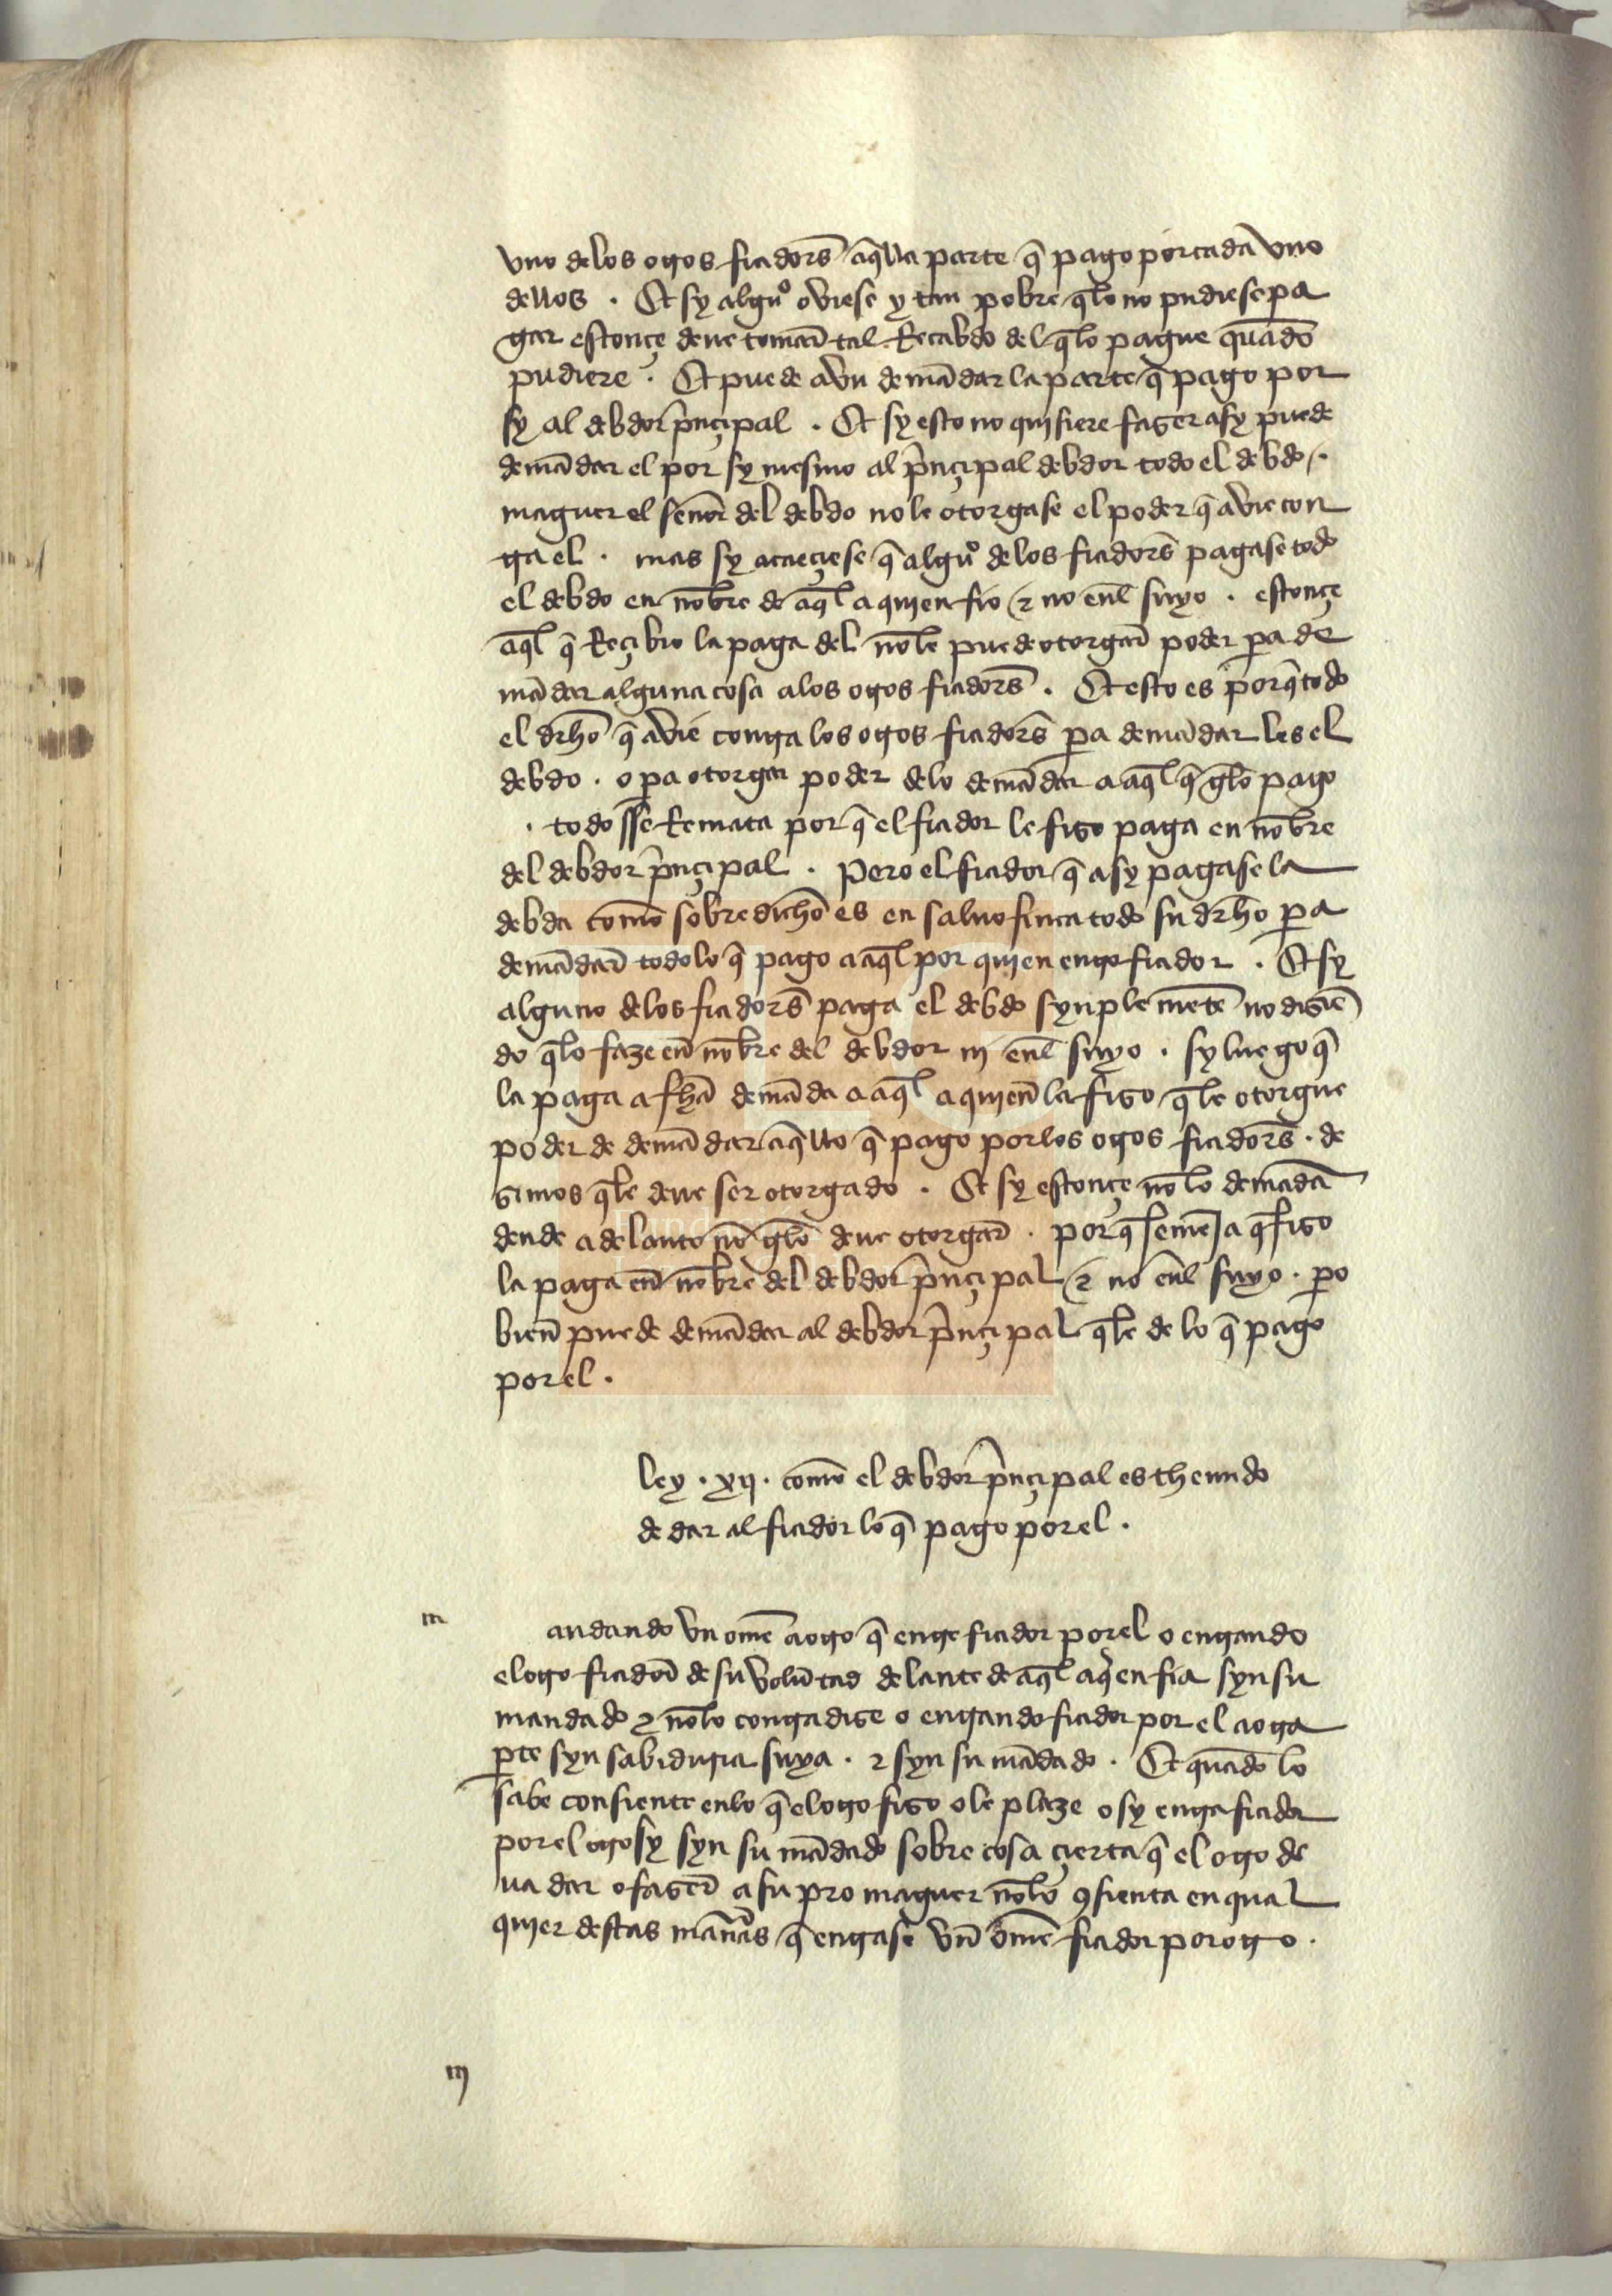 vno delos otros fiadors̃ aq̃lla parte q̃ pago por cada vno
dellos . Et sy algu᷑o oviese y tan pobre q̃lo no pudiese pa
gar estonçe deue tomar̃ tal Recabdo del q̃lo pague quãdo
pudiere . Et puede avn demãdar la parte q̃ pago por
sy al debdor p̃nçipal . Et sy esto no quisiere faser asy puede
demãdar el por sy mesmo al p̃nçipal debdor todo el debdo .
maguer el señor del debdo nole otorgase el poder q̃ avie con
tra el . mas sy acaeçiese q̃ algũo delos fiadors̃ pagase todo
el debdo en nõbre de aq̃l a quien fio ⁊ no enl̃ suyo . estonçe
aq̃l q̃ Reçibio la paga del nõle puede otorgar̃ poder pa de
mãdar alguna cosa alos otros fiadors̃ . Et esto es porq̃ todo
el drh̃o q̃ avie contra los otros fiadors̃ pa demãdar les el
debdo . o pa otorgar poder delo demãdar a aq̃l q̃ gelo pago
. todo sse Remata por q̃ el fiador le fiso paga en nõbre
del debdor p̃nçipal . Pero el fiador q̃ asy pagase la
debda como sobredicho es en saluo finca todo su drh̃o pa
demãdar̃ todo lo q̃ pago a aq̃l por quien entro fiador . Et sy
alguno delos fiadors̃ paga el debdo synple mẽte no disiẽ
do q̃lo faze eñ nõbre del debdor nj enl̃ suyo . sy luego q̃
la paga a fh̃a demãda a aq̃l a quieñ la fiso q̃le otorgue
poder de demãdar aq̃llo q̃ pago por los otros fiadors̃ . de
simos q̃le deue ser otorgado . Et sy estonçe nõ lo demãda
dende adelante nõ gelo deue otorgar̃ . por q̃ semeja q̃ fiso
la paga eñ nõbre del debdor p̃nçipal ⁊ no enl̃ suyo . po
bieñ puede demãdar al debdor p̃nçipal q̃le de lo q̃ pago
por el .
ley . xij . como el debdor p̃nçipal es thenudo
de dar al fiador lo q̃ pago por el .
m
andando vn ome a otro q̃ entre fiador por el o entrando
el otro fiador̃ de su volũtad delante de aq̃l a q̃en fia syn su
mandado ⁊ nõlo contradise o entrando fiador por el a otra
pte syn sabiduria suya . ⁊ syn su mãdado . Et quãdo lo
sabe consiente enlo q̃ el otro fiso o le plaze o sy entra fiador
por el otrosy syn su mãdado sobre cosa çierta q̃ el otro de
ua dar o faser̃ a su pro maguer nõlo ꝯsienta en qual
quier destas mañas q̃ entrase vñ ome fiador por otro .
nj